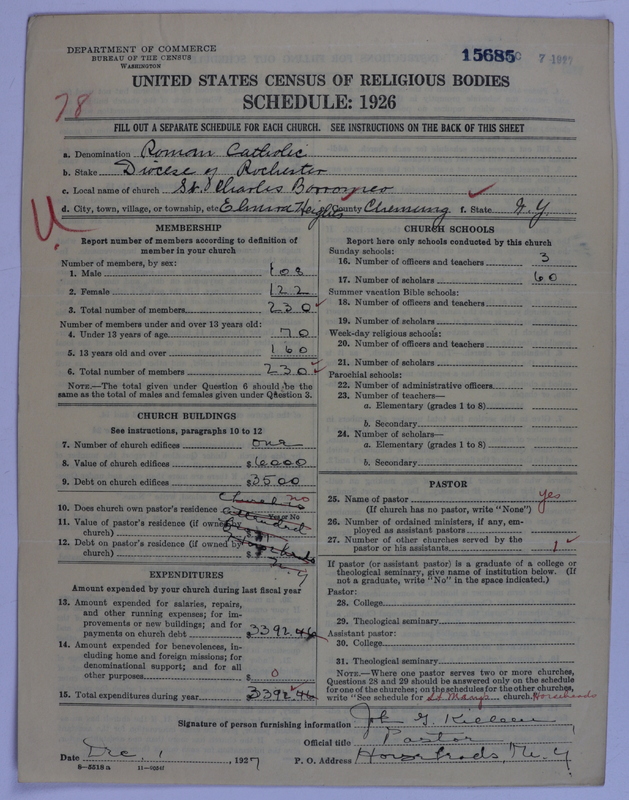 DEPARTMENT OF COMMERCE
BUREAU OF THE CENSUS
WASHINGTON
15685
7-1927
UNITED STATES CENSUS OF RELIGIOUS BODIES
SCHEDULE: 1926
78
FILL OUT A SEPARATE SCHEDULE FOR EACH CHURCH. SEE INSTRUCTIONS ON THE BACK OF THIS SHEET
a. Denomination Roman Catholic
b. Stake Diocese of Rochester
c. Local name of church St. Charles Borromeo
d. City, town, village, or township, etc. Elmira Heights County Chemung f. State N.Y.
MEMBERSHIP
Report number of members according to definition of
member in your church
Number of members, by sex:
1. Male 108
2. Female 122
3. Total number of members 230
Number of members under and over 13 years old:
4. Under 13 years of age 70
5. 13 years old and over 160
6. Total number of members 230
NOTE.—The total given under Question 6 should be the
same as the total of males and females given under Question 3.
CHURCH BUILDINGS
See instructions, paragraphs 10 to 12
7. Number of church edifices one
8. Value of church edifices $6000
9. Debt on church edifices $3500
10. Does church own pastor's residence no
Yes or No
Church is
attended
from
Horseheads
N.Y
11. Value of pastor's residence (if owned by
church) $
12. Debt on pastor's residence (if owned by
church) $
EXPENDITURES
Amount expended by your church during last fiscal year
13. Amount expended for salaries, repairs,
and other running expenses; for im-
provements or new buildings; and for
payments on church debt $3392.46
14. Amount expended for benevolences, in-
cluding home and foreign missions; for
denominational support; and for all
other purposes $ 0
15. Total expenditures during year $3392.46
CHURCH SCHOOLS
Report here only schools conducted by this church
Sunday schools:
16. Number of officers and teachers 3
17. Number of scholars 60
Summer vacation Bible schools:
18. Number of officers and teachers
19. Number of scholars
Week-day religious schools:
20. Number of officers and teachers
21. Number of scholars
Parochial schools:
22. Number of administrative officers
23. Number of teachers—
a. Elementary (grades 1 to 8)
b. Secondary
24. Number of scholars—
a. Elementary (grades 1 to 8)
b. Secondary
PASTOR
25. Name of pastor yes
(If church has no pastor, write "None")
26. Number of ordained ministers, if any, em-
ployed as assistant pastors
27. Number of other churches served by the
pastor or his assistants 1
If pastor (or assistant pastor) is a graduate of a college or
theological seminary, give name of institution below. (If
not a graduate, write "No" in the space indicated.)
Pastor:
28. College
29. Theological seminary
Assistant pastor:
30. College
31. Theological seminary
NOTE.—Where one pastor serves two or more churches,
Questions 28 and 29 should be answered only on the schedule
for one of the churches; on the schedules for the other churches,
write "See schedule for St. Mary's church. Horseheads
Signature of person furnishing information
Official title Pastor
Date Dec. 1, 1927 P. O. Address Horseheads N.Y
8-5518 a